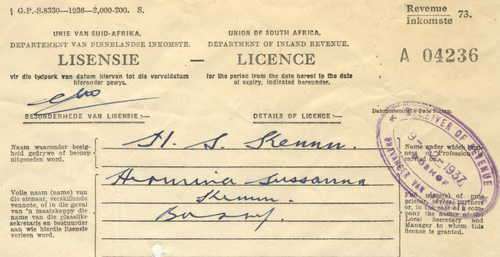 1 G.P.-S.8330—1936—2,000-700. S.
Revenue
Inkomste 73.
UNIE VAN SUID-AFRIKA.
UNION OF SOUTH AFRICA.
DEPARTEMENT VAN BINNELANDSE INKOMSTE.
DEPARTMENT OF INLAND REVENUE.
LISENSIE — LICENCE
A 04236
vir die tydperk van datum hiervan tot die vervaldatum
hieronder gemeld.
for the period from the date hereof to the date
of expiry, indicated hereunder.
BESONDERHEDE VAN LISENSIE:—
DETAILS OF LICENCE:—
Naam waaronder besigheid
gedrywe of beroep
uitgeoefen word.
H. S.
Name under which
Profession
Volle naam (name) van
die eienaar, verskillende
vennote, of in die geval
van 'n maatskappy die
name van die plaaslike
sekretaris en bestuurder
aan wie hierdie lisensie
verleen word.
Susanna
RECEIVER OF REVENUE
1937
ONTVANGER VAN
several partners
or, in the case of a company
the name of the
Local Secretary and
Manager to whom this
licence is granted.